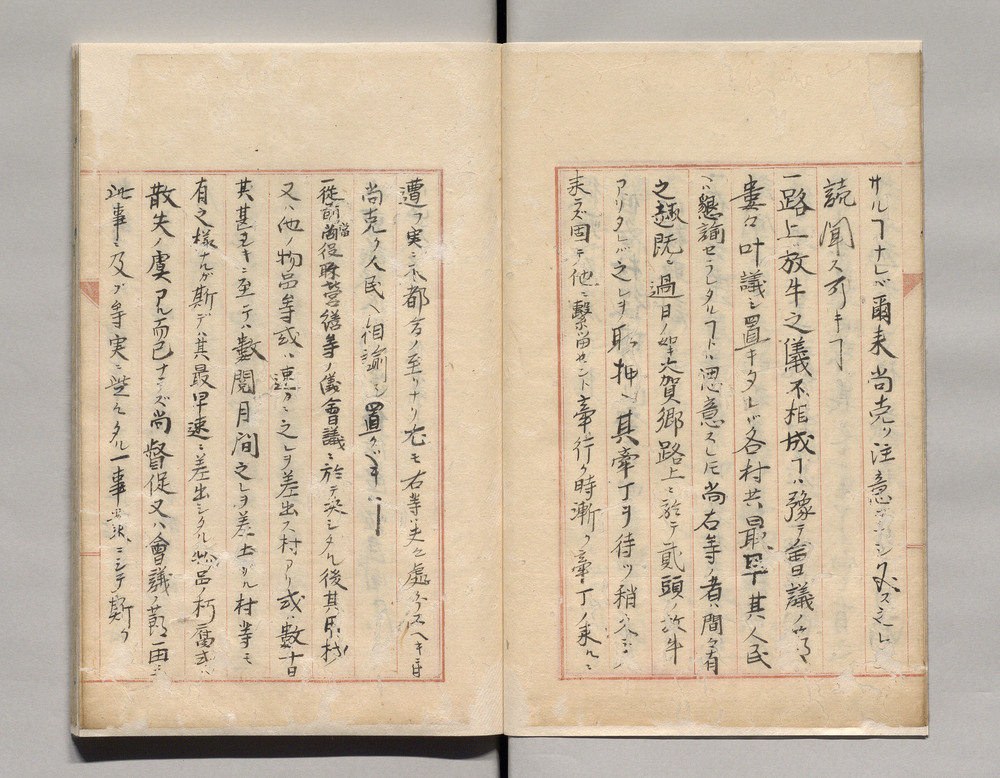 サルヿナレバ爾来尚克ク注意
読聞スベキヿ
一路上放牛之儀不相成ヿハ豫テ會議ノ
叶議シ置キタレバ各村共最早其人民
ヘハ懇諭セラレタルヿトハ思意スレ𪜈尚右等ノ者ハ間々有
之趣既ニ過日ノ如キ大賀郷路上ニ於テ貳頭ノ放牛
アリタレバ之レヲ取押ヘ其牽丁ヲ待ツ稍久シ
来ラズ因テ他ニ繋留セント牽行ク時漸ク牽丁ノ来ルニ
遭フ実ニ不都合ノ至リナリ尤モ右等ハ夫々處分スヘキ
尚克ク人民ヘ相諭シ置クベキヿ
一従前當役所営繕等ノ儀會議ニ於テ決シタル後其取材
又ハ他ノ物品等或ハ速カニ之レヲ差出ス村アリ或ハ数十日
其甚シキニ至テハ数閲月間之レヲ差出サル村等モ
有之様ナルガ斯テハ其最早速ニ差出シタル物品ノ朽腐或ハ
散失ノ虞アル而已ナラズ尚督促又ハ會議ノ
此事ニ及ブ等実ニ些々タル一事ニシテ斯ク